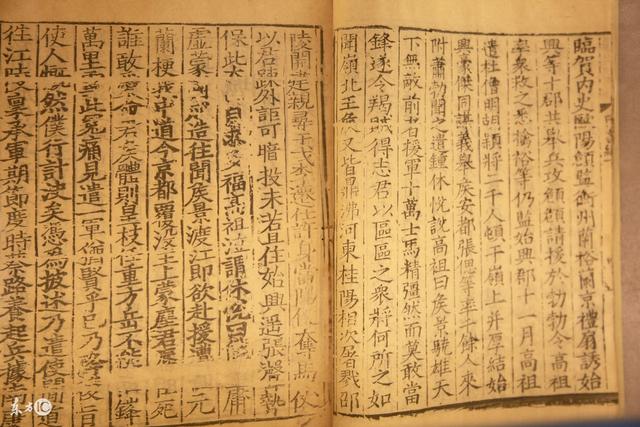 臨賀內史歐陽頠監衡州蘭裕蘭京禮扇誘始
興等十郡共舉兵攻頠頠請援於勃勃令高祖
率衆救之悉擒裕等仍監始興郡十一月高祖
遣杜僧明胡穎將二千人頓于嶺上并厚結始
興豪傑同謀義舉侯安都張偲等率千餘人來
附蕭勃聞之遣鍾休悅說高祖曰侯景驍雄天
下無敵前者援軍十萬士馬精彊然而莫敢當
鋒遂令羯賊得志君以區區之衆將何所之如
聞嶺北王侯又皆鼎沸河東桂陽相次屠戮邵
陵開建親尋干戈李遷仕許身當陽便奪馬仗
以君疎外詎可暗投未若且住始興遙張聲勢
保此太山自求多福高祖泣謂休悅曰庸
虛蒙國成造往聞侯景渡江即欲赴援遭元
蘭梗我中道今京都覆沒主上蒙塵君辱臣死
誰敢愛命君侯體則皇枝任重方岳不能鋒
萬里雪此冤痛見遣一軍猶賢乎已乃旨
使人慨然僕行計決矣憑為披述乃遣使間道
往江陵稟承軍期節度時蔡路養起兵據南
东方IC